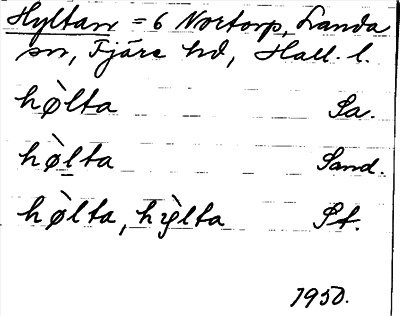 Hyltan = 6 Nortorp, Landa
sn, Fjäre hd, Hall. l.
hø̀lta Sa.
hø̀lta Sand.
hø̀lta, hỳlta St.
1950.